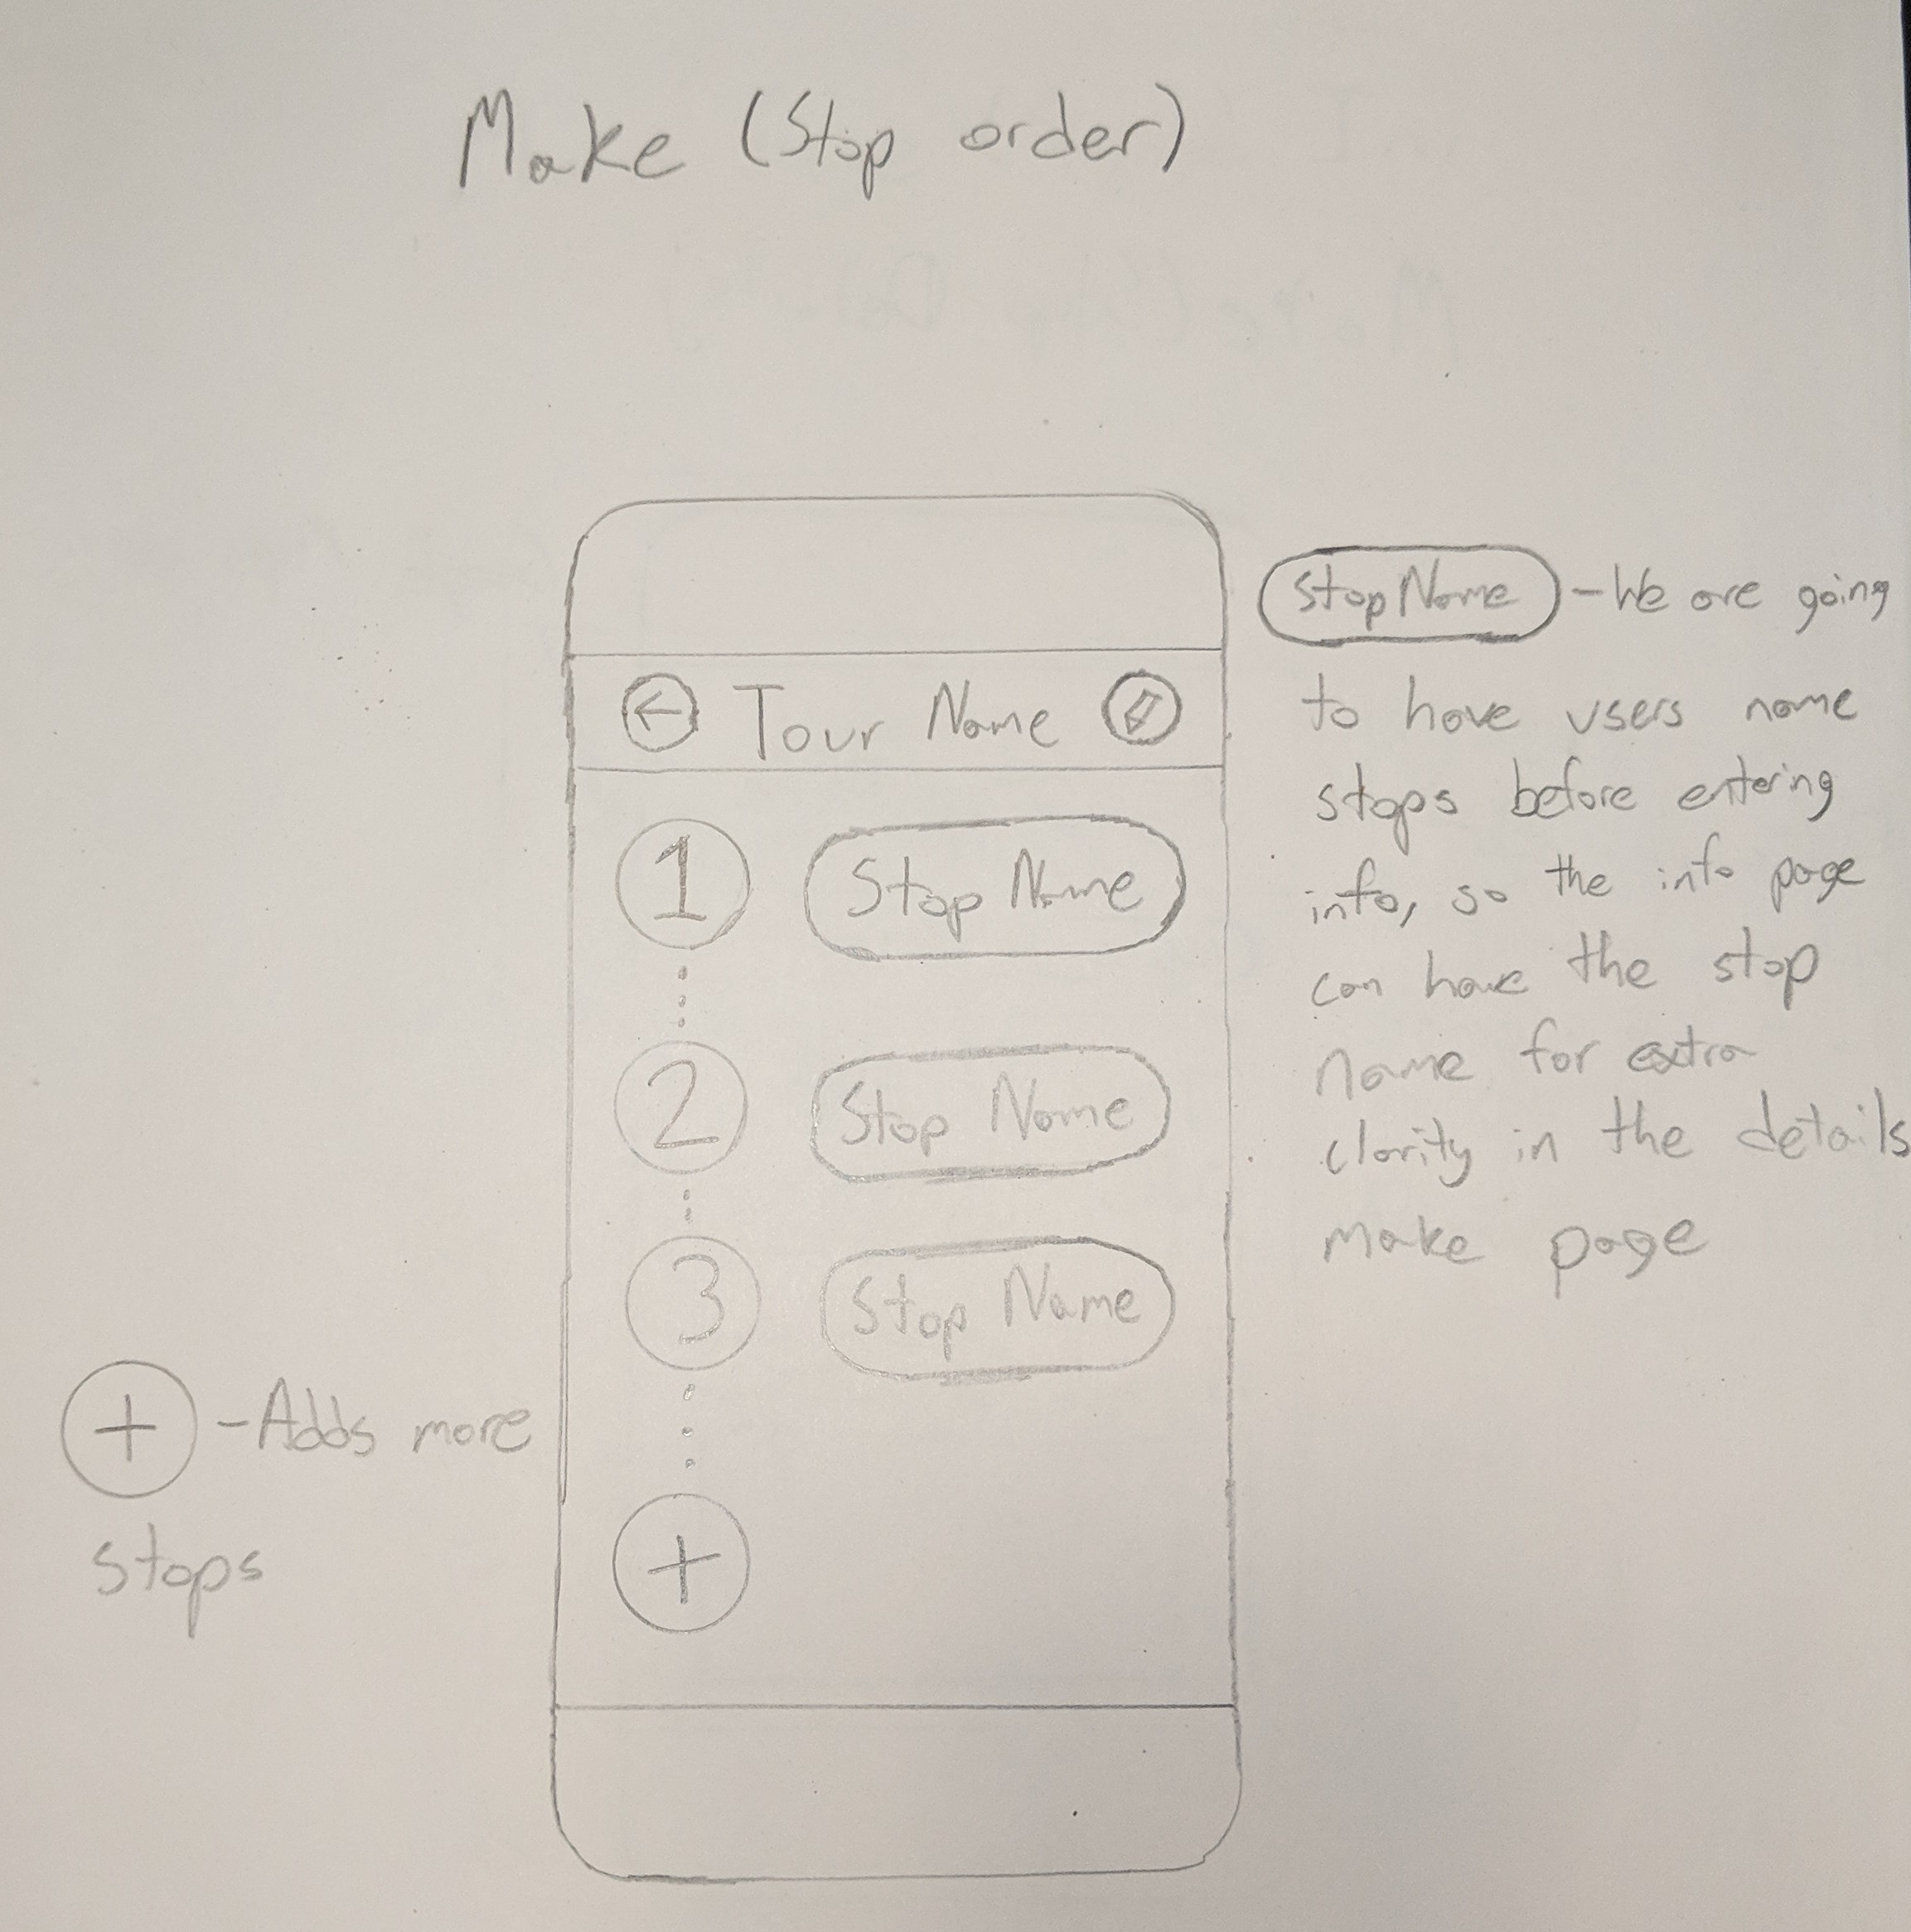 Make (Stop order)
Tour Name
1 Stop Name
2 Stop Name
3 Stop Name
+
Stop Name - We are going
to have users name
stops before entering
info, so the info page
can have the stop
name for extra
clarity in the details
make page
+ - Adds more
stops